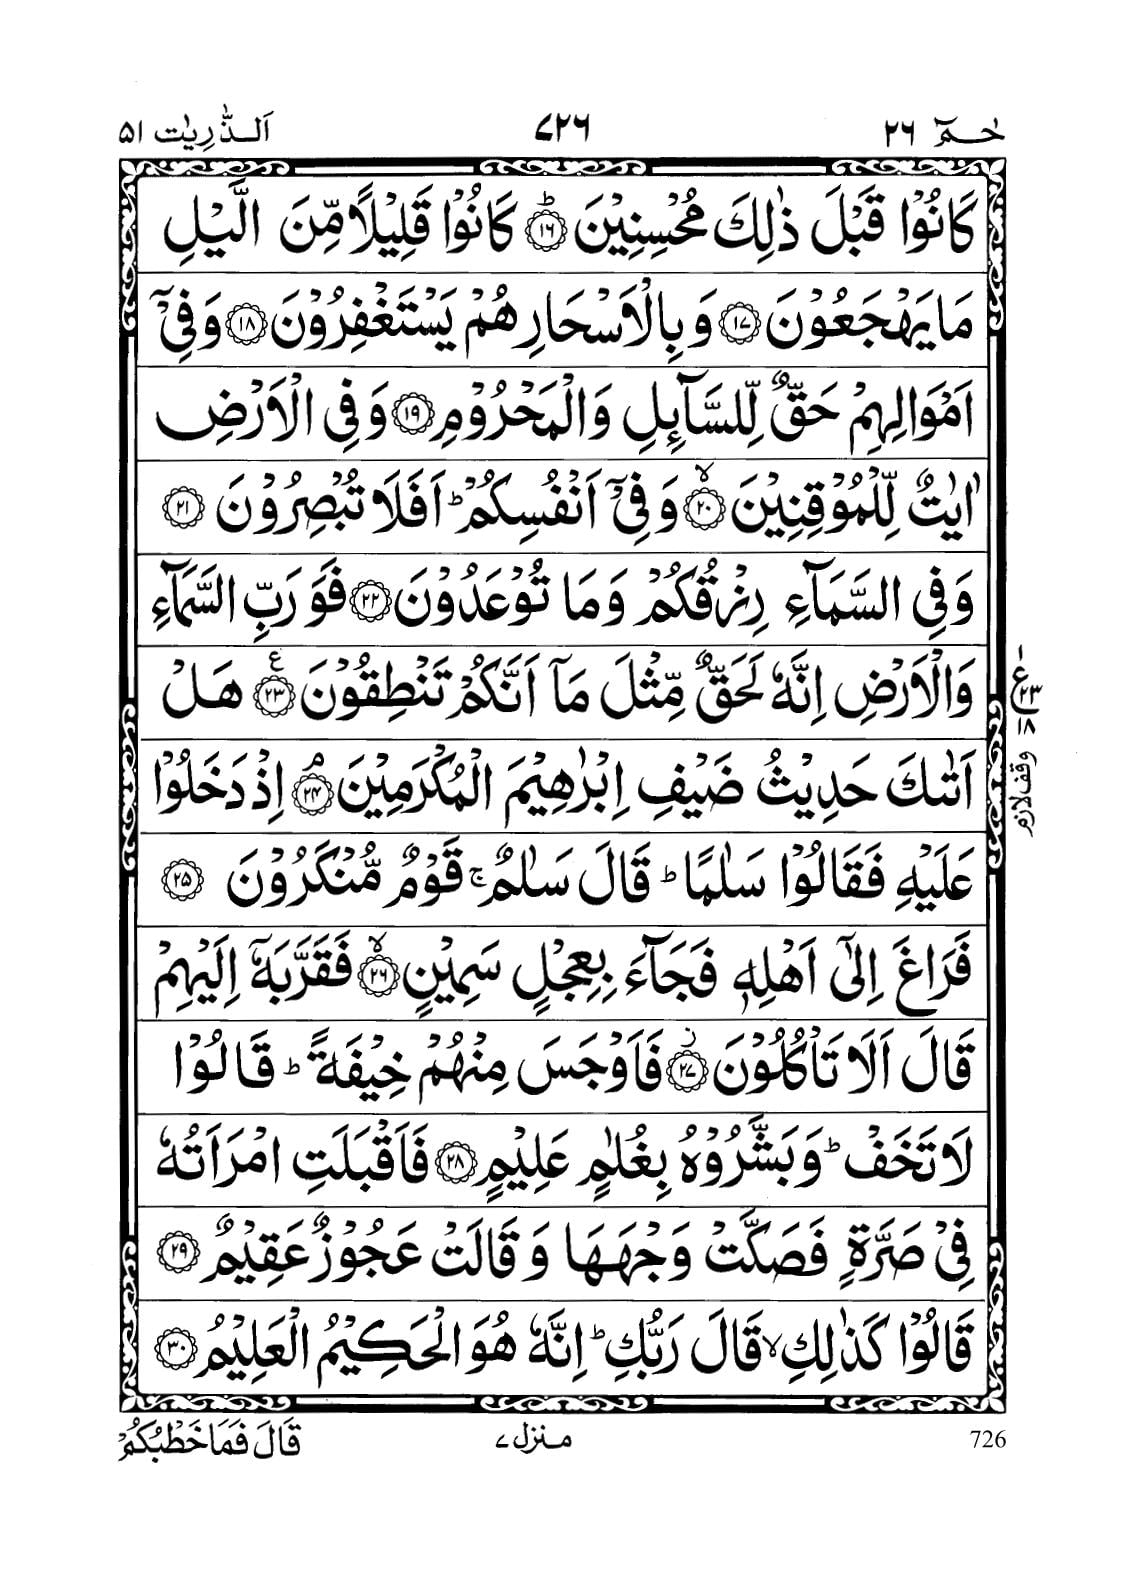 حٰـمٓ ٢٦
٧٢٦
اَلـذّٰرِيٰت ٥١
كَانُوْا قَبْلَ ذٰلِكَ مُحْسِنِيْنَ ؕ ﴿١٦﴾ كَانُوْا قَلِيْلًا مِّنَ الَّيْلِ
مَا يَهْجَعُوْنَ ﴿١٧﴾ وَ بِالْاَسْحَارِ هُمْ يَسْتَغْفِرُوْنَ ﴿١٨﴾ وَ فِيْۤ
اَمْوَالِهِمْ حَقٌّ لِّلسَّآىِٕلِ وَ الْمَحْرُوْمِ ﴿١٩﴾ وَ فِي الْاَرْضِ
اٰيٰتٌ لِّلْمُوْقِنِيْنَ ۙ ﴿٢٠﴾ وَ فِيْۤ اَنْفُسِكُمْ ؕ اَفَلَا تُبْصِرُوْنَ ﴿٢١﴾
وَ فِي السَّمَآءِ رِزْقُكُمْ وَ مَا تُوْعَدُوْنَ ﴿٢٢﴾ فَوَ رَبِّ السَّمَآءِ
وَ الْاَرْضِ اِنَّهٗ لَحَقٌّ مِّثْلَ مَاۤ اَنَّكُمْ تَنْطِقُوْنَ ﴿٢٣﴾ ع هَلْ
اَتٰىكَ حَدِيْثُ ضَيْفِ اِبْرٰهِيْمَ الْمُكْرَمِيْنَ ۘ ﴿٢٤﴾ اِذْ دَخَلُوْا
عَلَيْهِ فَقَالُوْا سَلٰمًا ؕ قَالَ سَلٰمٌ ۚ قَوْمٌ مُّنْكَرُوْنَ ﴿٢٥﴾
فَرَاغَ اِلٰۤى اَهْلِهٖ فَجَآءَ بِعِجْلٍ سَمِيْنٍ ۙ ﴿٢٦﴾ فَقَرَّبَهٗۤ اِلَيْهِمْ
قَالَ اَلَا تَاْكُلُوْنَ ز ﴿٢٧﴾ فَاَوْجَسَ مِنْهُمْ خِيْفَةً ؕ قَالُوْا
لَا تَخَفْ ؕ وَ بَشَّرُوْهُ بِغُلٰمٍ عَلِيْمٍ ﴿٢٨﴾ فَاَقْبَلَتِ امْرَاَتُهٗ
فِيْ صَرَّةٍ فَصَكَّتْ وَجْهَهَا وَ قَالَتْ عَجُوْزٌ عَقِيْمٌ ﴿٢٩﴾
قَالُوْا كَذٰلِكِ ۙ قَالَ رَبُّكِ ؕ اِنَّهٗ هُوَ الْحَكِيْمُ الْعَلِيْمُ ﴿٣٠﴾
١
ع
٢٣
١٨
وقف لازم
726
مـنزل ٧
قَالَ فَمَا خَطْبُكُمْ